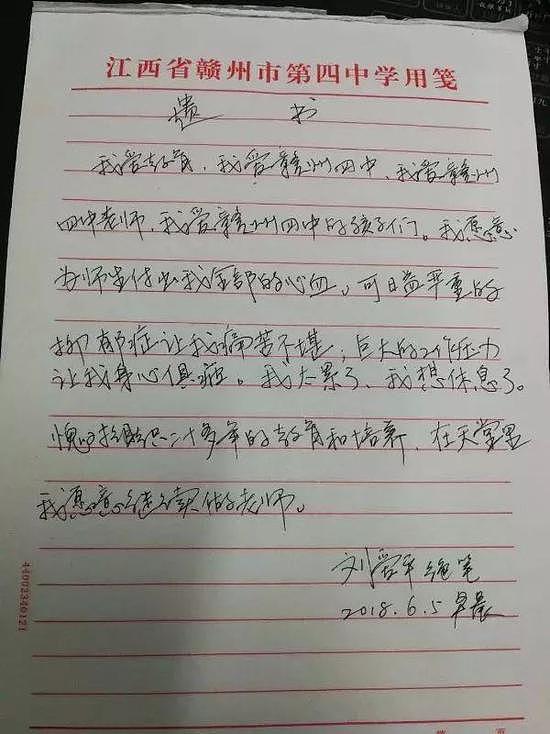 江西省赣州市第四中学用笺
遗 书
我爱教育，我爱赣州四中，我爱赣州
四中老师，我爱赣州四中的孩子们。我愿意
为师生付出我全部的心血。可日益严重的
抑郁症让我痛苦不堪；巨大的工作压力
让我身心俱疲。我太累了、我想休息了。
愧对组织二十多年的教育和培养，在天堂里
我愿意继续做老师。
刘爱平绝笔
2018.6.5早晨
44002340121
第 页